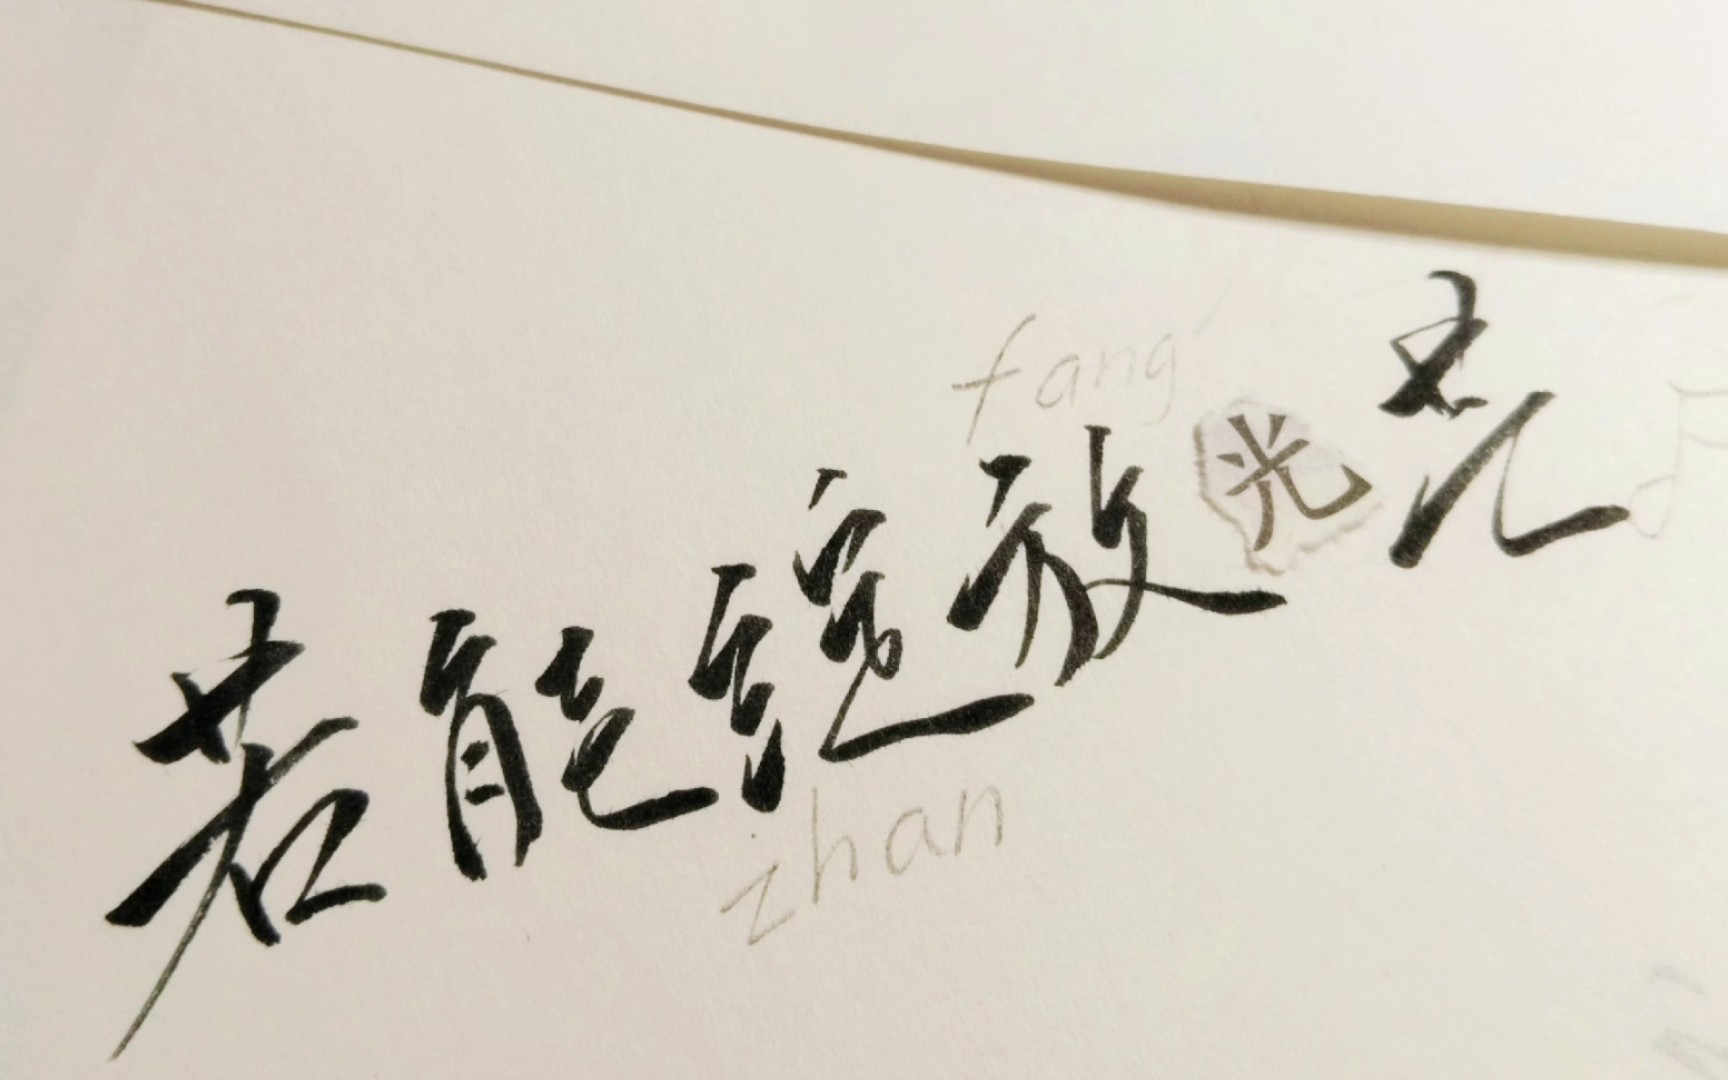 fang
若能绽放光芒
zhan